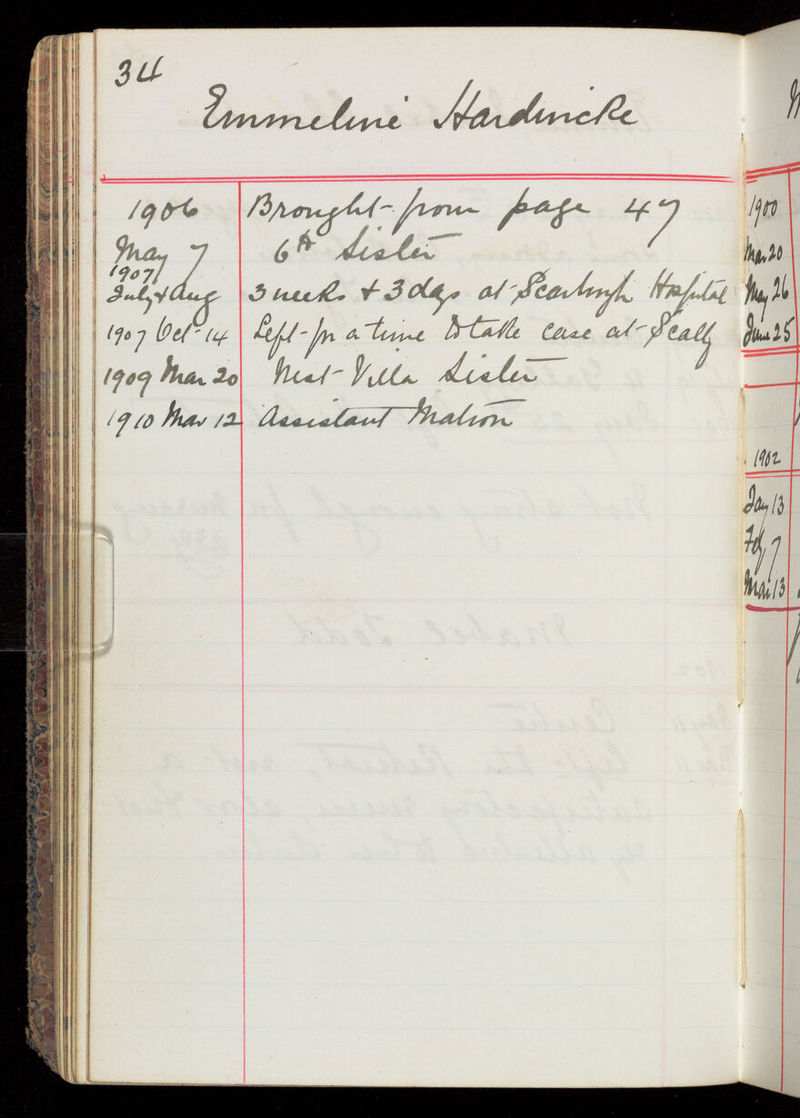 34
Emmeline Hardwicke
1906 Brought from page 47
May 7 6th Sister
1907
July & Aug 3 weeks & 3 days at Scarbrough Hospital
1907 Oct 14 Left for a time to take case at Scalby
1909 Mar 20 West Villa Sister
1910 Mar 12 Assistant Matron
1900
Mar 20
May 26
June 25
1902
Jay 13
Feby 7
Mar 13